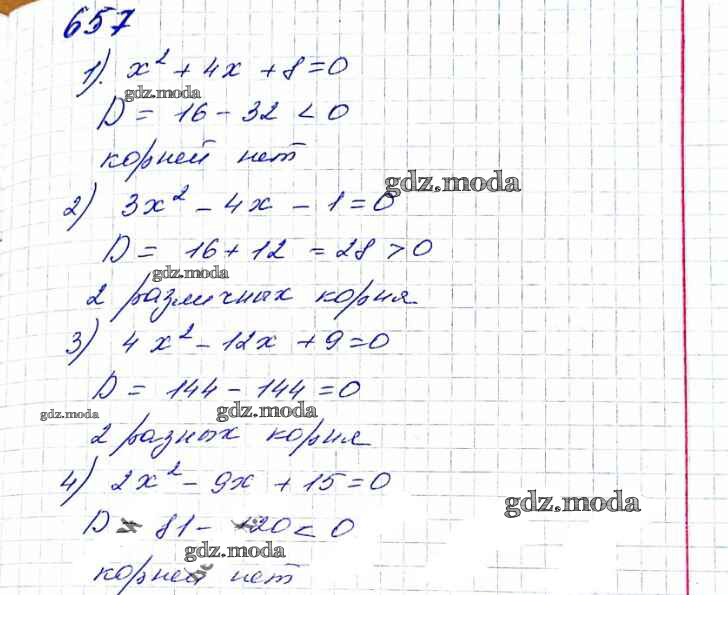 657
1). x² + 4x + 8 = 0
gdz.moda
D = 16 - 32 < 0
корней нет
gdz.moda
2) 3x² - 4x - 1 = 0
D = 16 + 12 = 28 > 0
gdz.moda
2 различных корня
3) 4x² - 12x + 9 = 0
D = 144 - 144 = 0
gdz.moda
gdz.moda
2 разных корня
4) 2x² - 9x + 15 = 0
gdz.moda
D = 81 - 120 < 0
gdz.moda
корней нет
gdz.moda